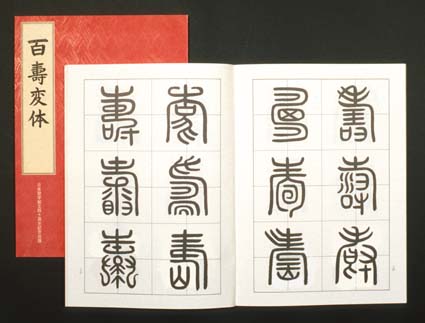 百壽変体
壽壽壽
壽壽壽
壽壽壽
壽壽壽